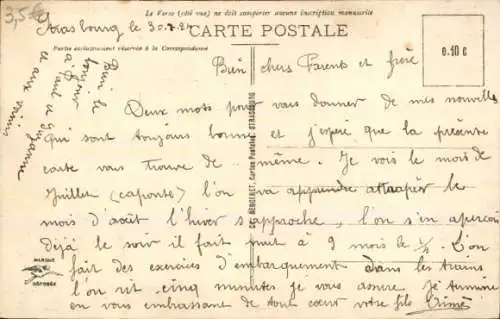 3,5€
Le Verso (côté vue) ne doit comporter aucune inscription manuscrite
Strasbourg le 30.7.2
CARTE POSTALE
Partie exclusivement réservée à la Correspondance
0.10 c
Bien chers Parents et frère
Deux mots pour vous donner de mes nouvelles
qui sont toujours bonnes et j'espère que la présente
carte vous trouve de même. Je vois le mois de
Juillet (caporte) l'on va apprendre attraper le
mois d'août l'hiver s'approche, l'on s'en aperçoit
déjà le soir il fait nuit à 9 mois le 1/4. L'on
fait des exercices d'embarquement dans les trains
l'on rit cinq minutes je vous assure. Je termine
en vous embrassant de tout cœur votre fils Aimé
le bonjour
à Paul et Suzanne
et aux voisins
MARQUE
DÉPOSÉE
Cartes Postales, STRASBOURG